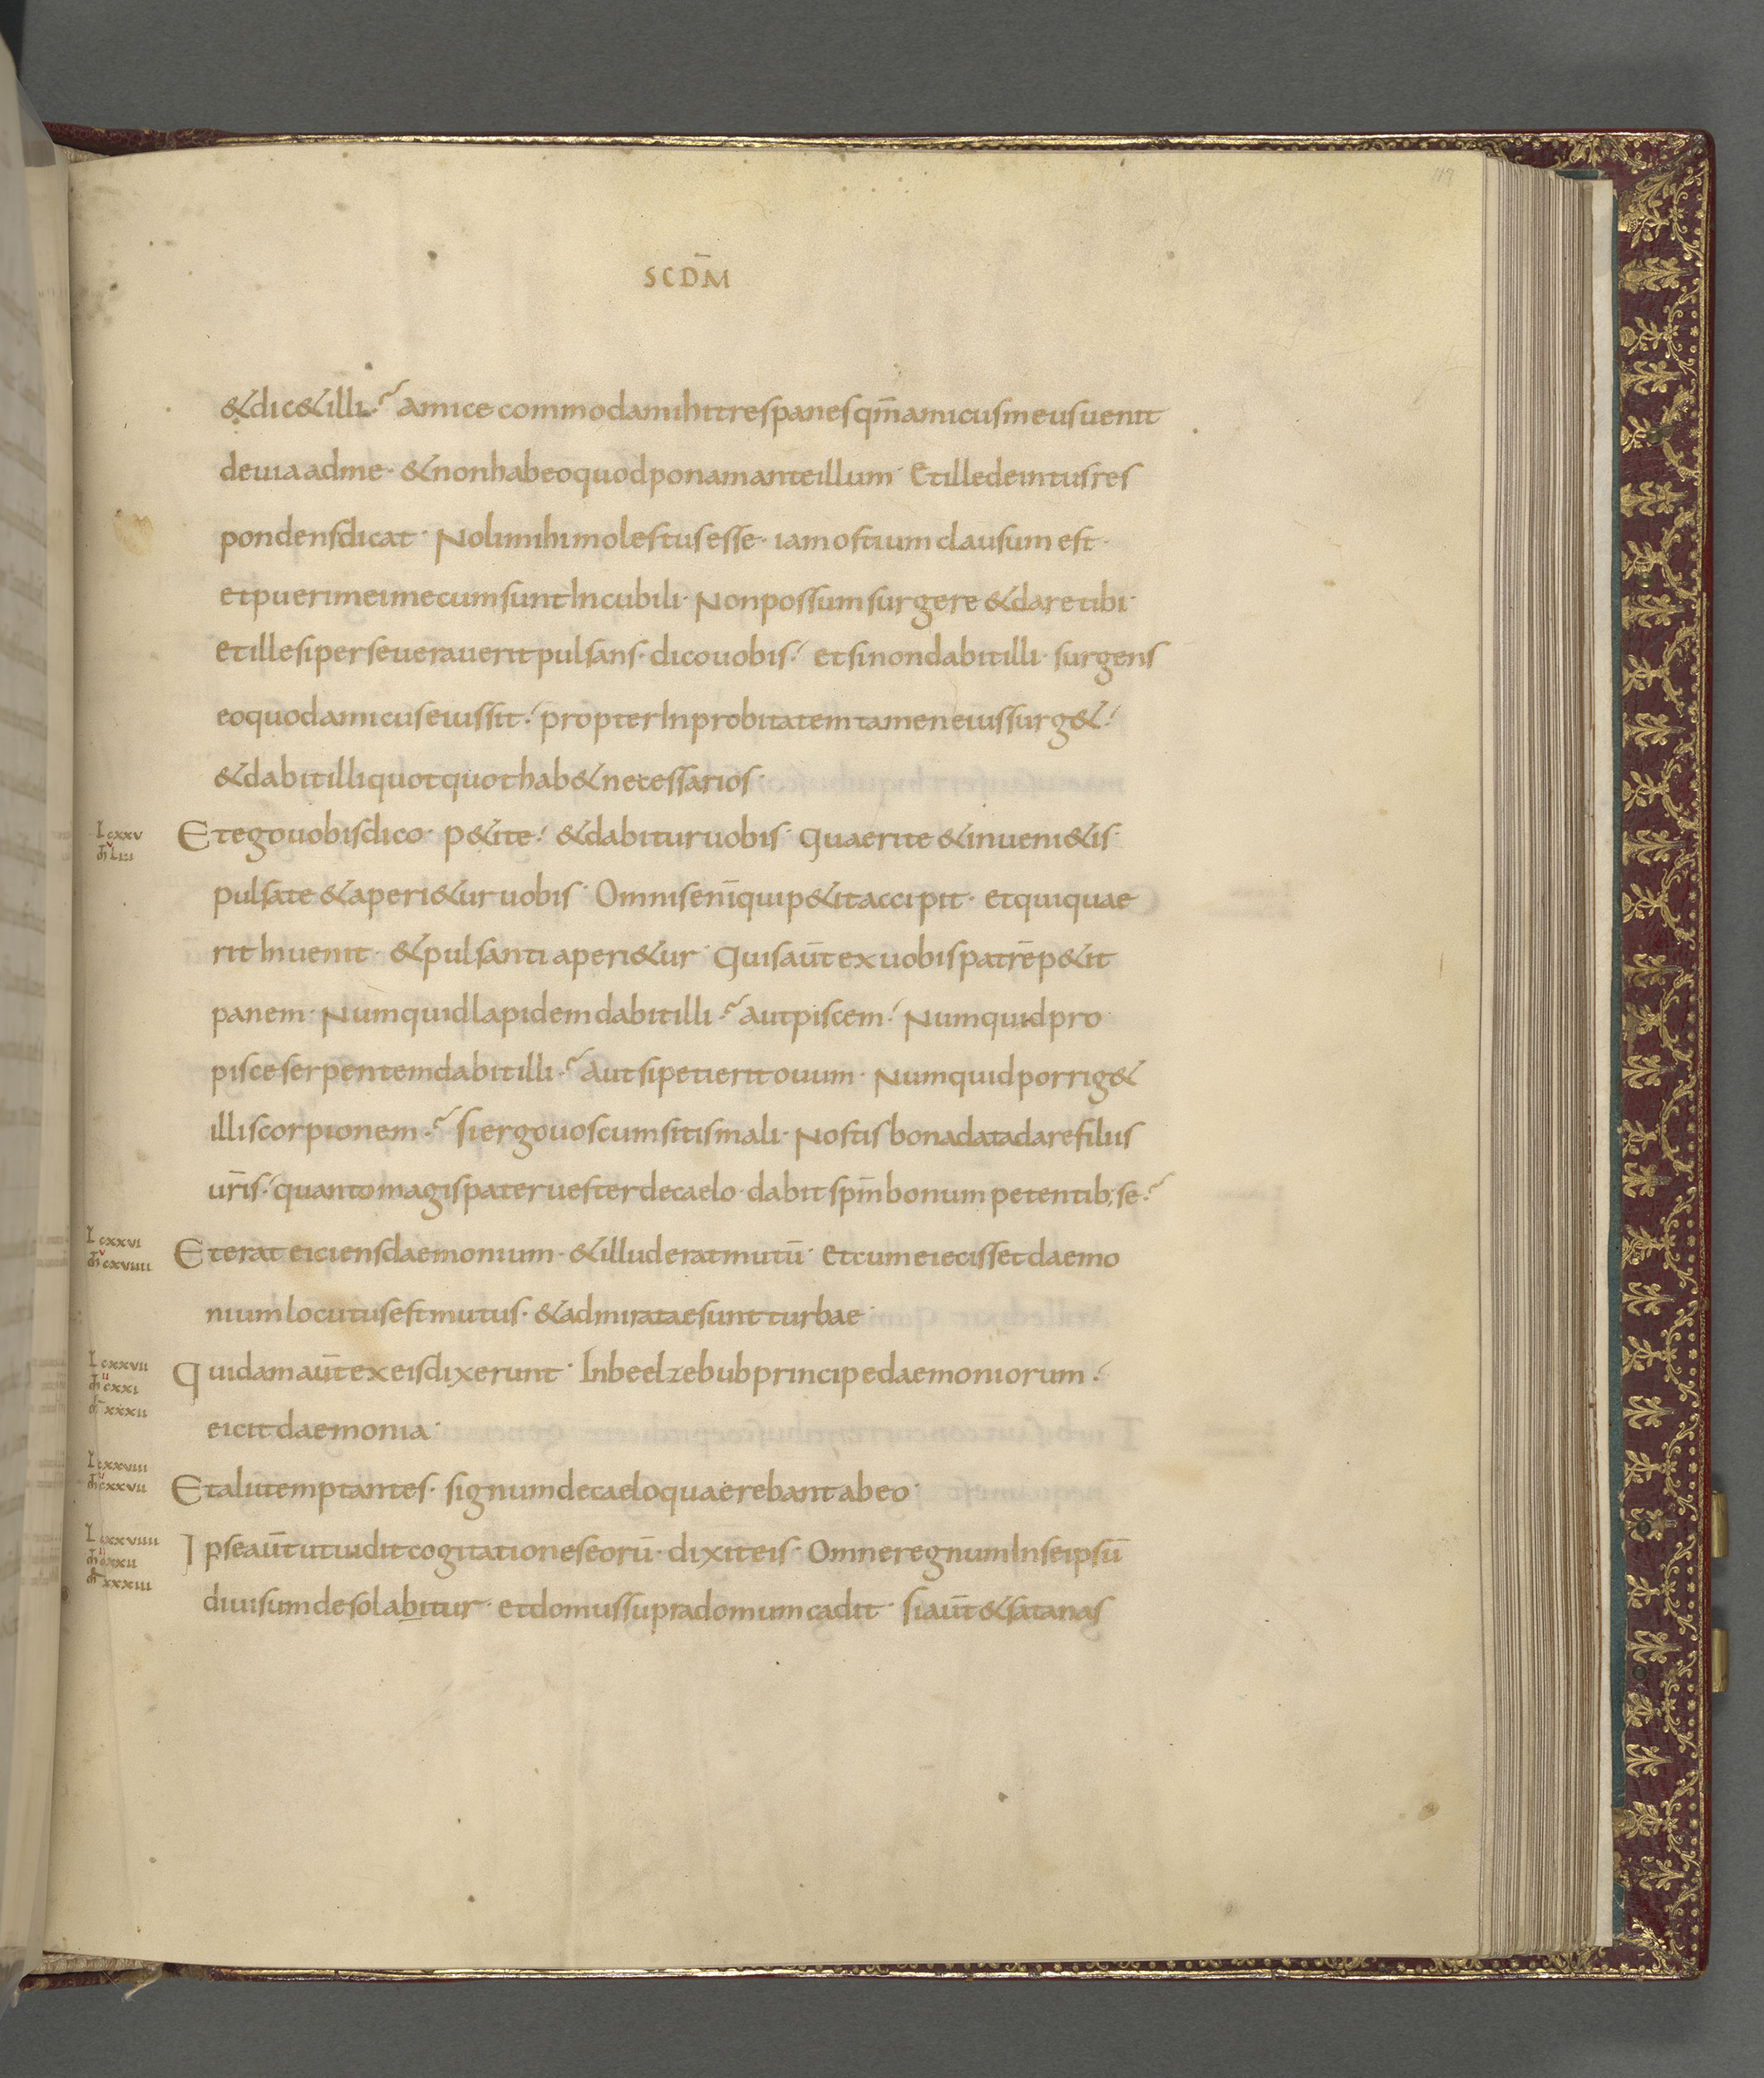 119
SCDM̄
&dic&illi· amice commodamihitrespanesqm̄amicusmeusuenit
deuiaadme· &nonhabeoquodponamanteillum· Etilledeintusres
pondensdicat· Nolimihimolestusesse· iamostiumclausumest·
etpuerimeimecumsuntIncubili· Nonpossumsurgere&daretibi·
etillesiperseueraueritpulsans· dicouobis· etsinondabitilli· surgens
eoquodamicuseiussit· propterInprobitatemtameneiussurg&·
&dabitilliquotquothab&necessarios·
L cxxv
m̄ Liii
Etegouobisdico· p&ite· &dabituruobis· Quaerite&inueni&is·
pulsate&aperi&ur uobis· Omnisenīquip&itaccipit· etquiquae
ritInuenit· &pulsantiaperi&ur· Quisaūtexuobispatrēp&it
panem· Numquidlapidemdabitilli· autpiscem· Numquidpro
pisceserpentemdabitilli· Autsipetieritouum· Numquidporrig&
illiscorpionem· siergouoscumsitismali· Nostisbonadatadarefiliis
ur̄is· quantomagispateruesterdecaelo· dabitspm̄bonumpetentib;se·
L cxxvi
m̄ cxviiii
Eterateiciensdaemonium· &illuderatmutū· etcumeiecissetdaemo
niumlocutusestmutus· &admirataesuntturbae·
L cxxvii
m̄ cxxi
m̄ xxxii
Quidamaūtexeisdixerunt· Inbeelzebubprincipedaemoniorum·
eicitdaemonia·
L cxxviii
m̄ cxxvii
Etaliitemptantes· signumdecaeloquaerebantabeo·
L cxxviiii
m̄ cxxii
m̄ xxxiii
Ipseaūtutuiditcogitationeseorū· dixiteis· OmneregnumInseipsū
diuisumdesolabitur· etdomussupradomumcadit· siaūt&satanas